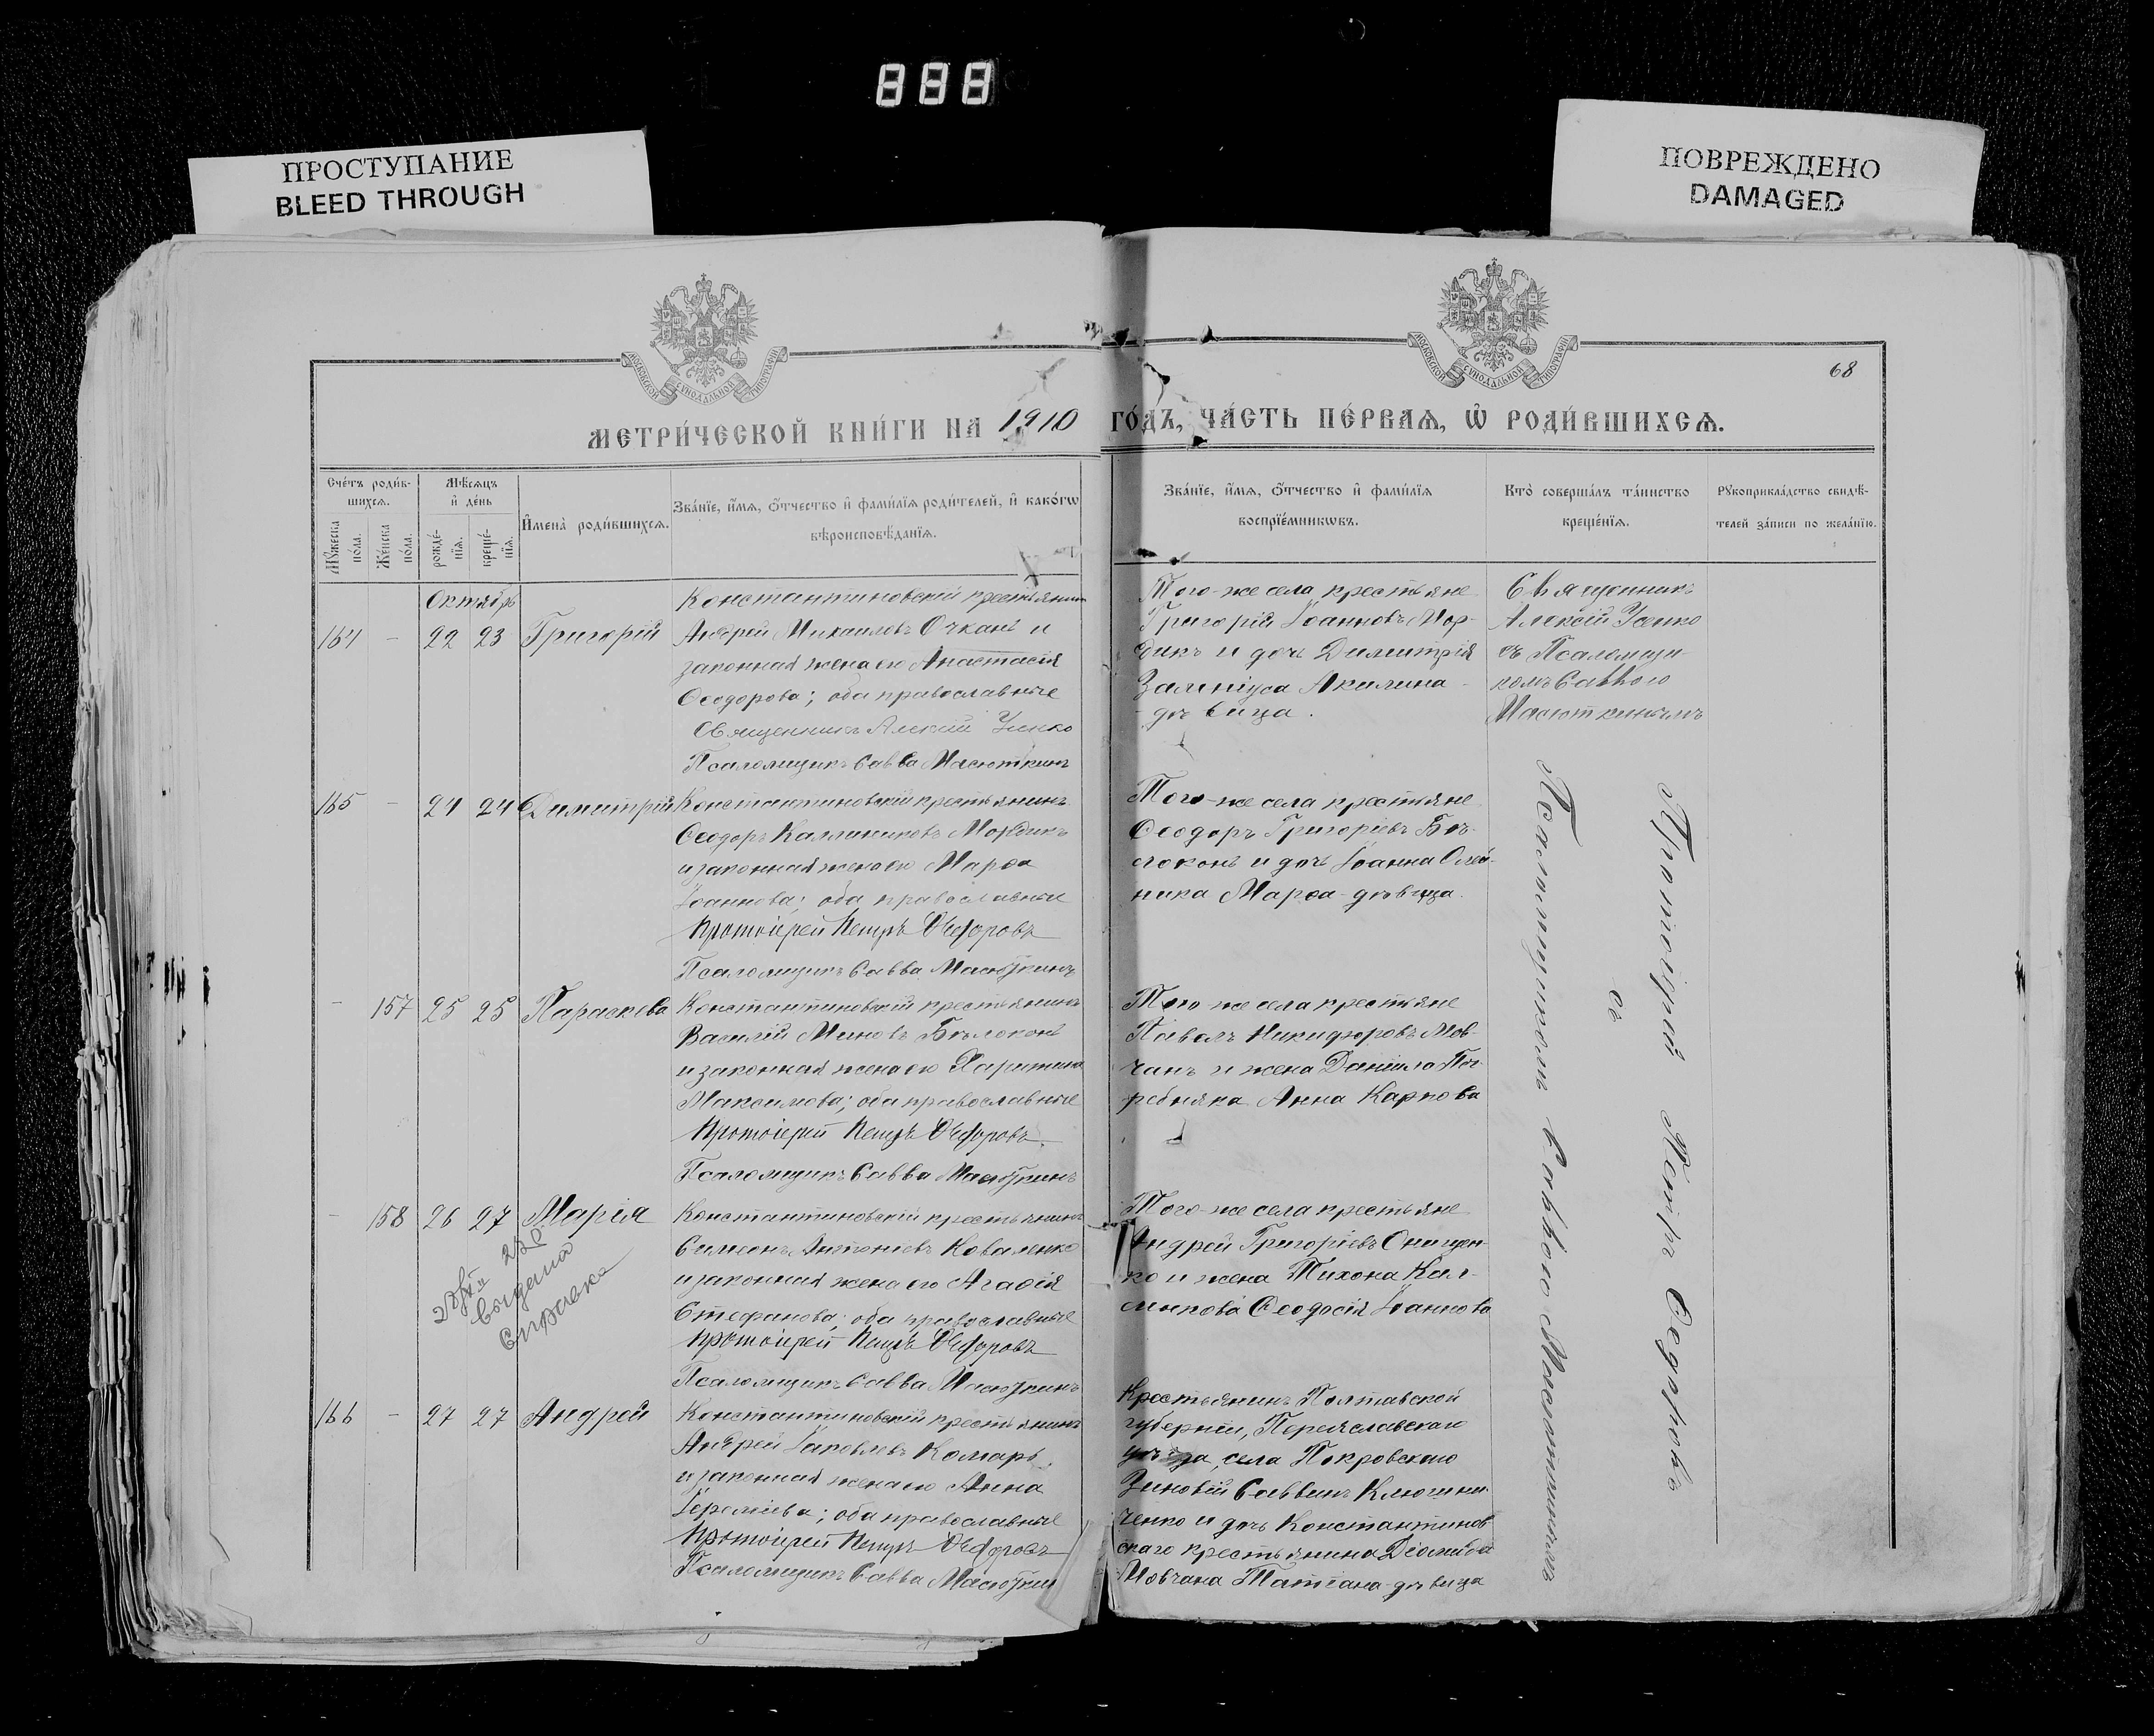 888
ПРОСТУПАНИЕ
BLEED THROUGH
ПОВРЕЖДЕНО
DAMAGED
МОСКОВСКОЙ СѴНОДАЛЬНОЙ ТИПОГРАФІИ
МОСКОВСКОЙ СѴНОДАЛЬНОЙ ТИПОГРАФІИ
68
МЕТРИ́ЧЕСКОЙ КНИ́ГИ НА 1910 ГО́ДЪ, ЧА́СТЬ ПЕ́РВАЯ, Ѡ҆ РОДИ́ВШИХСЯ.
Сче́тъ роди́в-
шихся.
Мꙋжеска по́ла.
Же́нска по́ла.
Мѣ́сяцъ
и҆ де́нь
рожде́-
нїя.
креще́-
нїя.
И҆мена̀ роди́вшихся.
Зва́нїе, и҆́мя, ѻ҆́тчество и҆ фами́лїя роди́телей, и҆ како́гѡ
вѣроисповѣ́данїя.
Зва́нїе, и҆́мя, ѻ҆́тчество и҆ фами́лїя
воспрїе́мникѡвъ.
Кто̀ соверша́лъ та́инство
креще́нїя.
Рꙋкоприкла́дство свидѣ́-
телей за́писи по жела́нїю.
Октябрь
164 - 22 23 Григорій
Константиновскій крестьянинъ
Андрей Михаиловъ Очкань и
законная жена его Анастасія
Ѳеодорова; оба православные
Священникъ Алексій Усенко
Псаломщикъ Савва Масюткинъ
Того-же села крестьяне
Григорій Іоанновъ Мор-
дикъ и дочь Димитрія
Акилина -
дѣвица.
Священникъ
Алексій Усенко
съ Псаломщи-
комъ Саввою
Масюткинымъ
165 - 24 24 Димитрій
Константиновскій крестьянинъ
Ѳеодоръ Каллиниковъ Мордикъ
и законная жена его Марѳа
Іоаннова; оба православные
Протоіерей Петръ Ѳедоровъ
Псаломщикъ Савва Масюткинъ
Того-же села крестьяне
Ѳеодоръ Григоріевъ Бѣ-
локонь и дочь Іоанна Олей-
ника Марѳа-дѣвица.
- 157 25 25 Параскева
Константиновскій крестьянинъ
Василій Миновъ Бѣлоконь
и законная жена его Харитина
Максимова; оба православные
Протоіерей Петръ Ѳедоровъ
Псаломщикъ Савва Масюткинъ
Того-же села крестьяне
Павелъ Никифоровъ Мов-
чанъ и жена Даніила По-
гребняка Анна Карпова
- 158 26 27 Марія
выдана
справка
Константиновскій крестьянинъ
Симеонъ Антоніевъ Коваленко
и законная жена его Агаѳія
Стефанова; оба православные
Протоіерей Петръ Ѳедоровъ
Псаломщикъ Савва Масюткинъ
Того-же села крестьяне
Андрей Григоріевъ Онищен-
ко и жена Тихона Кал-
Ѳеодосія Іоаннова
166 - 27 27 Андрей
Константиновскій крестьянинъ
Андрей Іаковлевъ Комарь
и законная жена его Анна
Іереміева; оба православные
Протоіерей Петръ Ѳедоровъ
Псаломщикъ Савва Масюткин
Крестьянинъ Полтавской
губерніи, Переяславскаго
уѣзда, села Покровскаго
Зиновій Саввинъ
и дочь Константинов
скаго крестьянина Діомида
Мовчана Татіана-дѣвица
Протоіерей Петръ Ѳедоровъ
съ
Псаломщикомъ Саввою Масюткинымъ